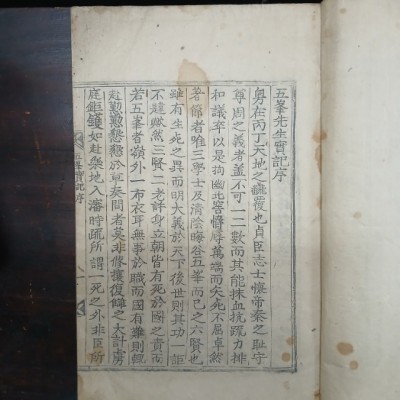 五峯先生實記序
粤在丙丁天地之飜覆也貞臣志士慟帝秦之恥守
尊周之義者蓋不可一二數而其能抹血抗疏力排
和議卒以是拘幽北窖備嘗萬端而矢死不屈卓然
著節者唯三學士及淸陰晦谷五峯而已之六賢也
雖有生死之異而明大義於天下後世則其功一
不趐歟然三賢二老許身立朝皆有死於國之責而
若五峯者嶺外一布衣耳無事於職而國有難則輒
赴勤勤懇懇於章奏間者莫非修攘復雠之大計虜
庭鉅鑊如赴樂地入瀋時疏所謂一死之外非臣所
五峯實記序